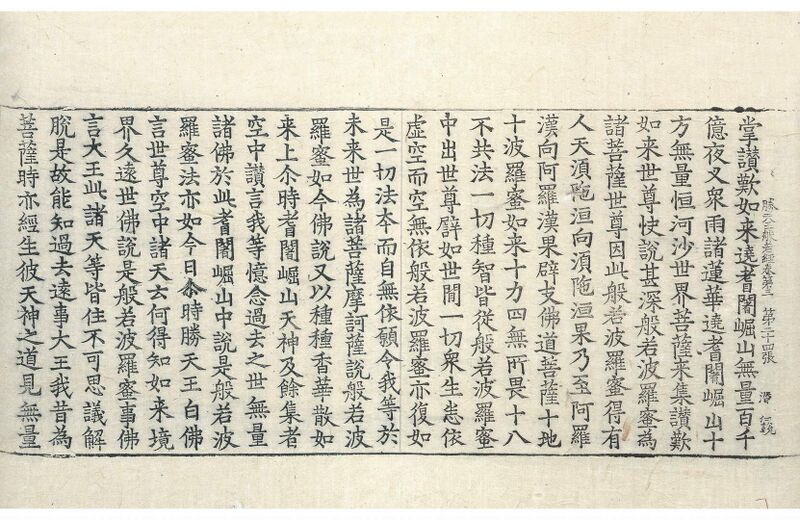 第二十四張 潛
掌讚歎如來遶耆闍崛山無量百千
億夜叉衆雨諸蓮華遶耆闍崛山十
方無量恒河沙世界菩薩來集讚歎
如來世尊快說甚深般若波羅蜜為
諸菩薩世尊因此般若波羅蜜得有
人天須陁洹向須陁洹果乃至阿羅
漢向阿羅漢果辟支佛道菩薩十地
十波羅蜜如來十力四無所畏十八
不共法一切種智皆從般若波羅蜜
中出世尊譬如世間一切衆生悉依
虛空而空無依般若波羅蜜亦復如
是一切法本而自無依願令我等於
未來世為諸菩薩摩訶薩說般若波
羅蜜如今佛說又以種種香華散如
來上尒時耆闍崛山天神及餘集者
空中讚言我等憶念過去之世無量
諸佛於此耆闍崛山中說是般若波
羅蜜法亦如今日尒時勝天王白佛
言世尊空中諸天云何得知如來境
界久遠世佛說是般若波羅蜜事佛
言大王此諸天等皆住不可思議解
脫是故能知過去遠事大王我昔為
菩薩時亦經生彼天神之道見無量